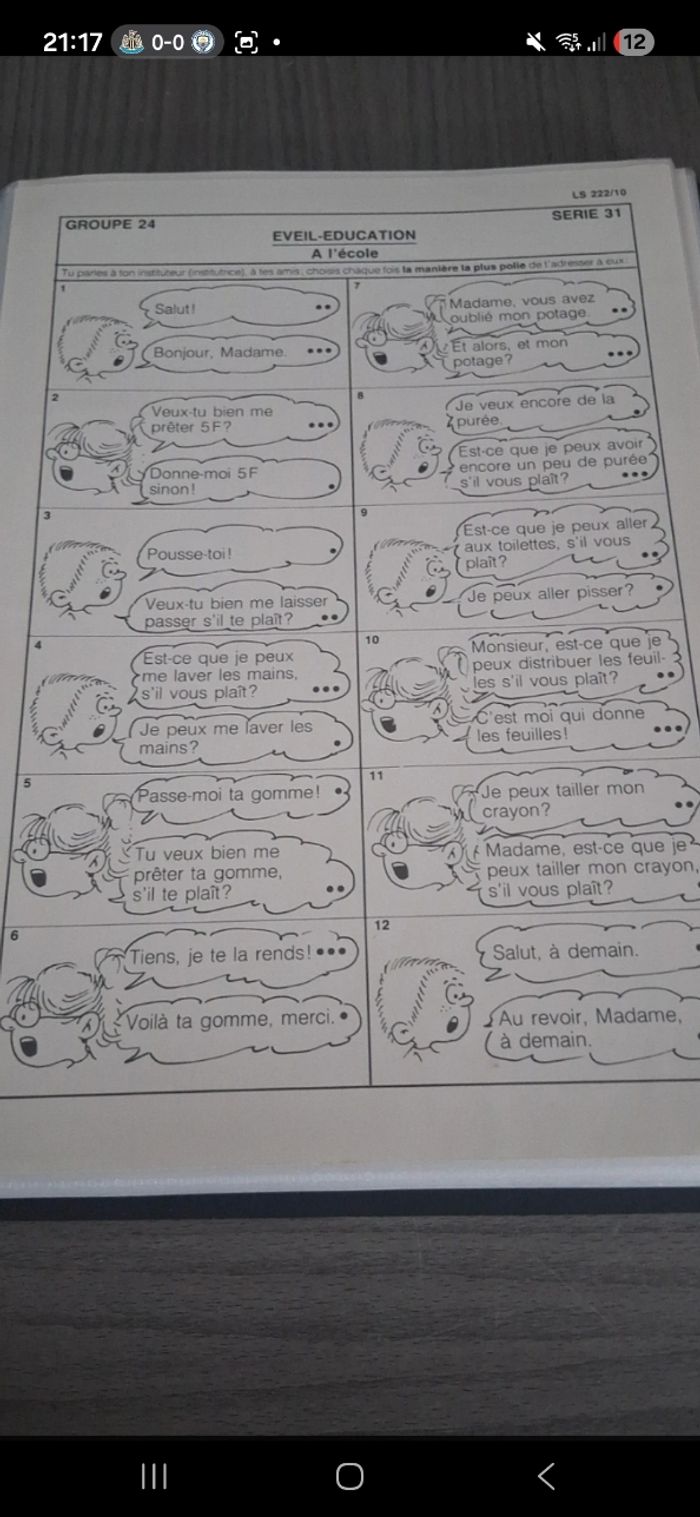 21:17
0-0
5
12
LS 222/10
GROUPE 24
SERIE 31
EVEIL-EDUCATION
A l'école
Tu parles à ton instituteur (institutrice), à tes amis; choisis chaque fois la manière la plus polie de t'adresser à eux.
1
Salut!
Bonjour, Madame.
2
Veux-tu bien me
prêter 5F?
Donne-moi 5F
sinon!
3
Pousse-toi!
Veux-tu bien me laisser
passer s'il te plaît?
4
Est-ce que je peux
me laver les mains,
s'il vous plaît?
Je peux me laver les
mains?
5
Passe-moi ta gomme!
Tu veux bien me
prêter ta gomme,
s'il te plaît?
6
Tiens, je te la rends!
Voilà ta gomme, merci.
7
Madame, vous avez
oublié mon potage.
Et alors, et mon
potage?
8
Je veux encore de la
purée.
Est-ce que je peux avoir
encore un peu de purée
s'il vous plaît?
9
Est-ce que je peux aller
aux toilettes, s'il vous
plaît?
Je peux aller pisser?
10
Monsieur, est-ce que je
peux distribuer les feuil-
les s'il vous plaît?
C'est moi qui donne
les feuilles!
11
Je peux tailler mon
crayon?
Madame, est-ce que je
peux tailler mon crayon,
s'il vous plaît?
12
Salut, à demain.
Au revoir, Madame,
à demain.